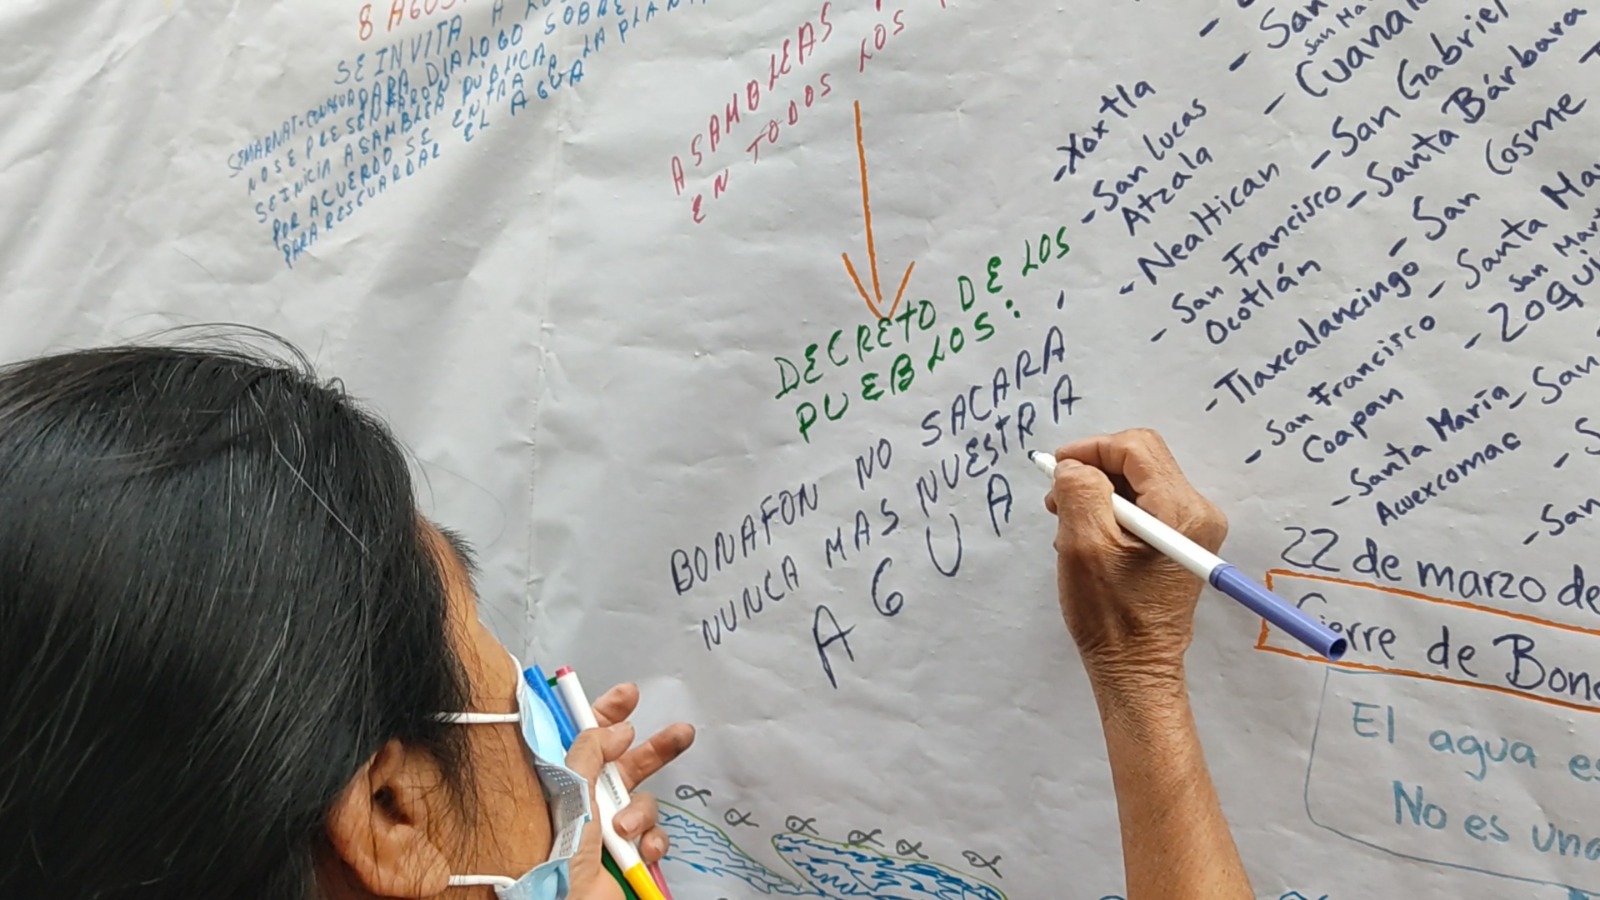 8 AGOS
SE INVITA A
SEMARNAT-CONAGUA PARA DIALOGO SOBRE
NO SE PRESENTARON
SE INICIA ASAMBLEA PUBLICA
POR ACUERDO SE ENTRA A LA PLANTA
PARA RESGUARDAR EL AGUA
ASAMBLEAS
EN TODOS LOS
DECRETO DE LOS
PUEBLOS:
BONAFON NO SACARÁ
NUNCA MAS NUESTRA
AGUA
- Xoxtla
- San Lucas
Atzala
- Nealtican
- San Francisco
Ocotlán
- Tlaxcalancingo
- San Francisco
Coapan
- Santa María
Acuexcomac
- San
- Cuana
- San Gabriel
- Santa Bárbara
- San Cosme
- Santa Ma
San Mar
- Zoqui
- San
- San
22 de marzo de
Cierre de Bona
El agua es
No es una